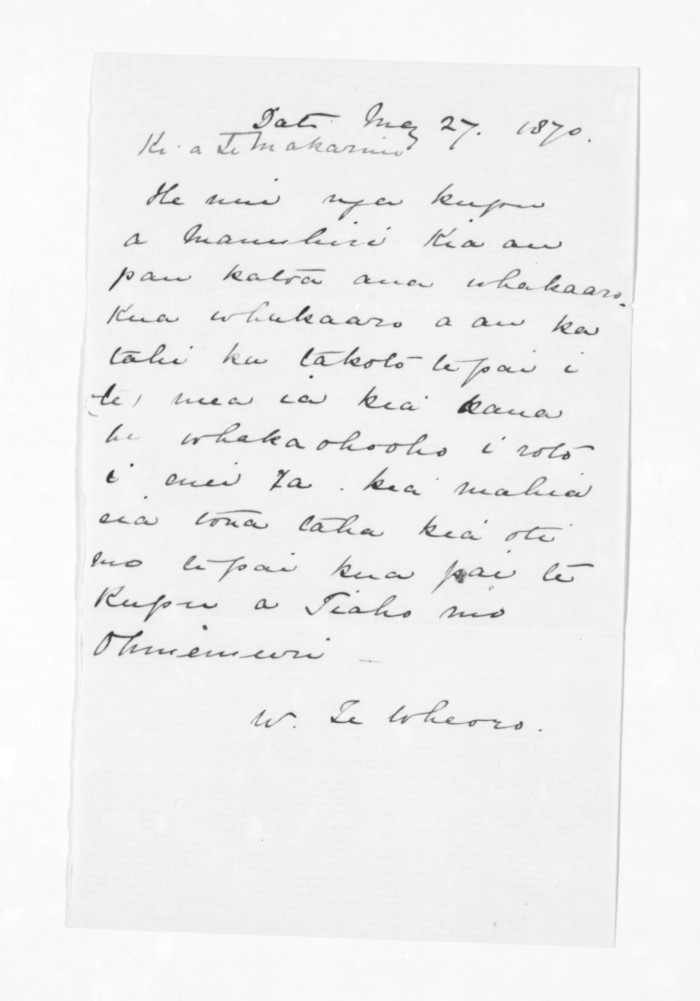 Date May 27. 1870.
Ki a Te Makarini
He nui nga kupu
a Manuhiri Kia au
pau katoa ana whakaaro.
Kua whakaaro a au ka
tahi ka takoto te pai i
te, mea ia kia kaua
he whakaohooho i roto
i enei ra. kia mahia
eia tona taha kia oti
mo te pai kua pai te
Kupu a Tiaho mo
Ohinemuri -
W. Te Wheoro.